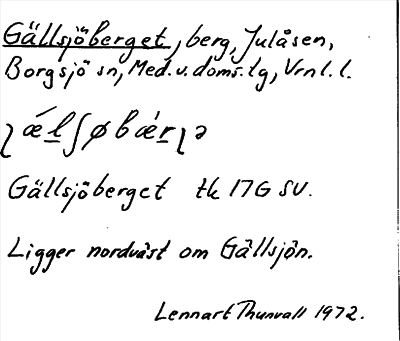 Gällsjöberget, berg, Julåsen,
Borgsjö sn, Med. v. doms. lg, Vrnl. l.
Gällsjöberget tk 17G SV.
Ligger nordväst om Gällsjön.
Lennart Thunvall 1972.